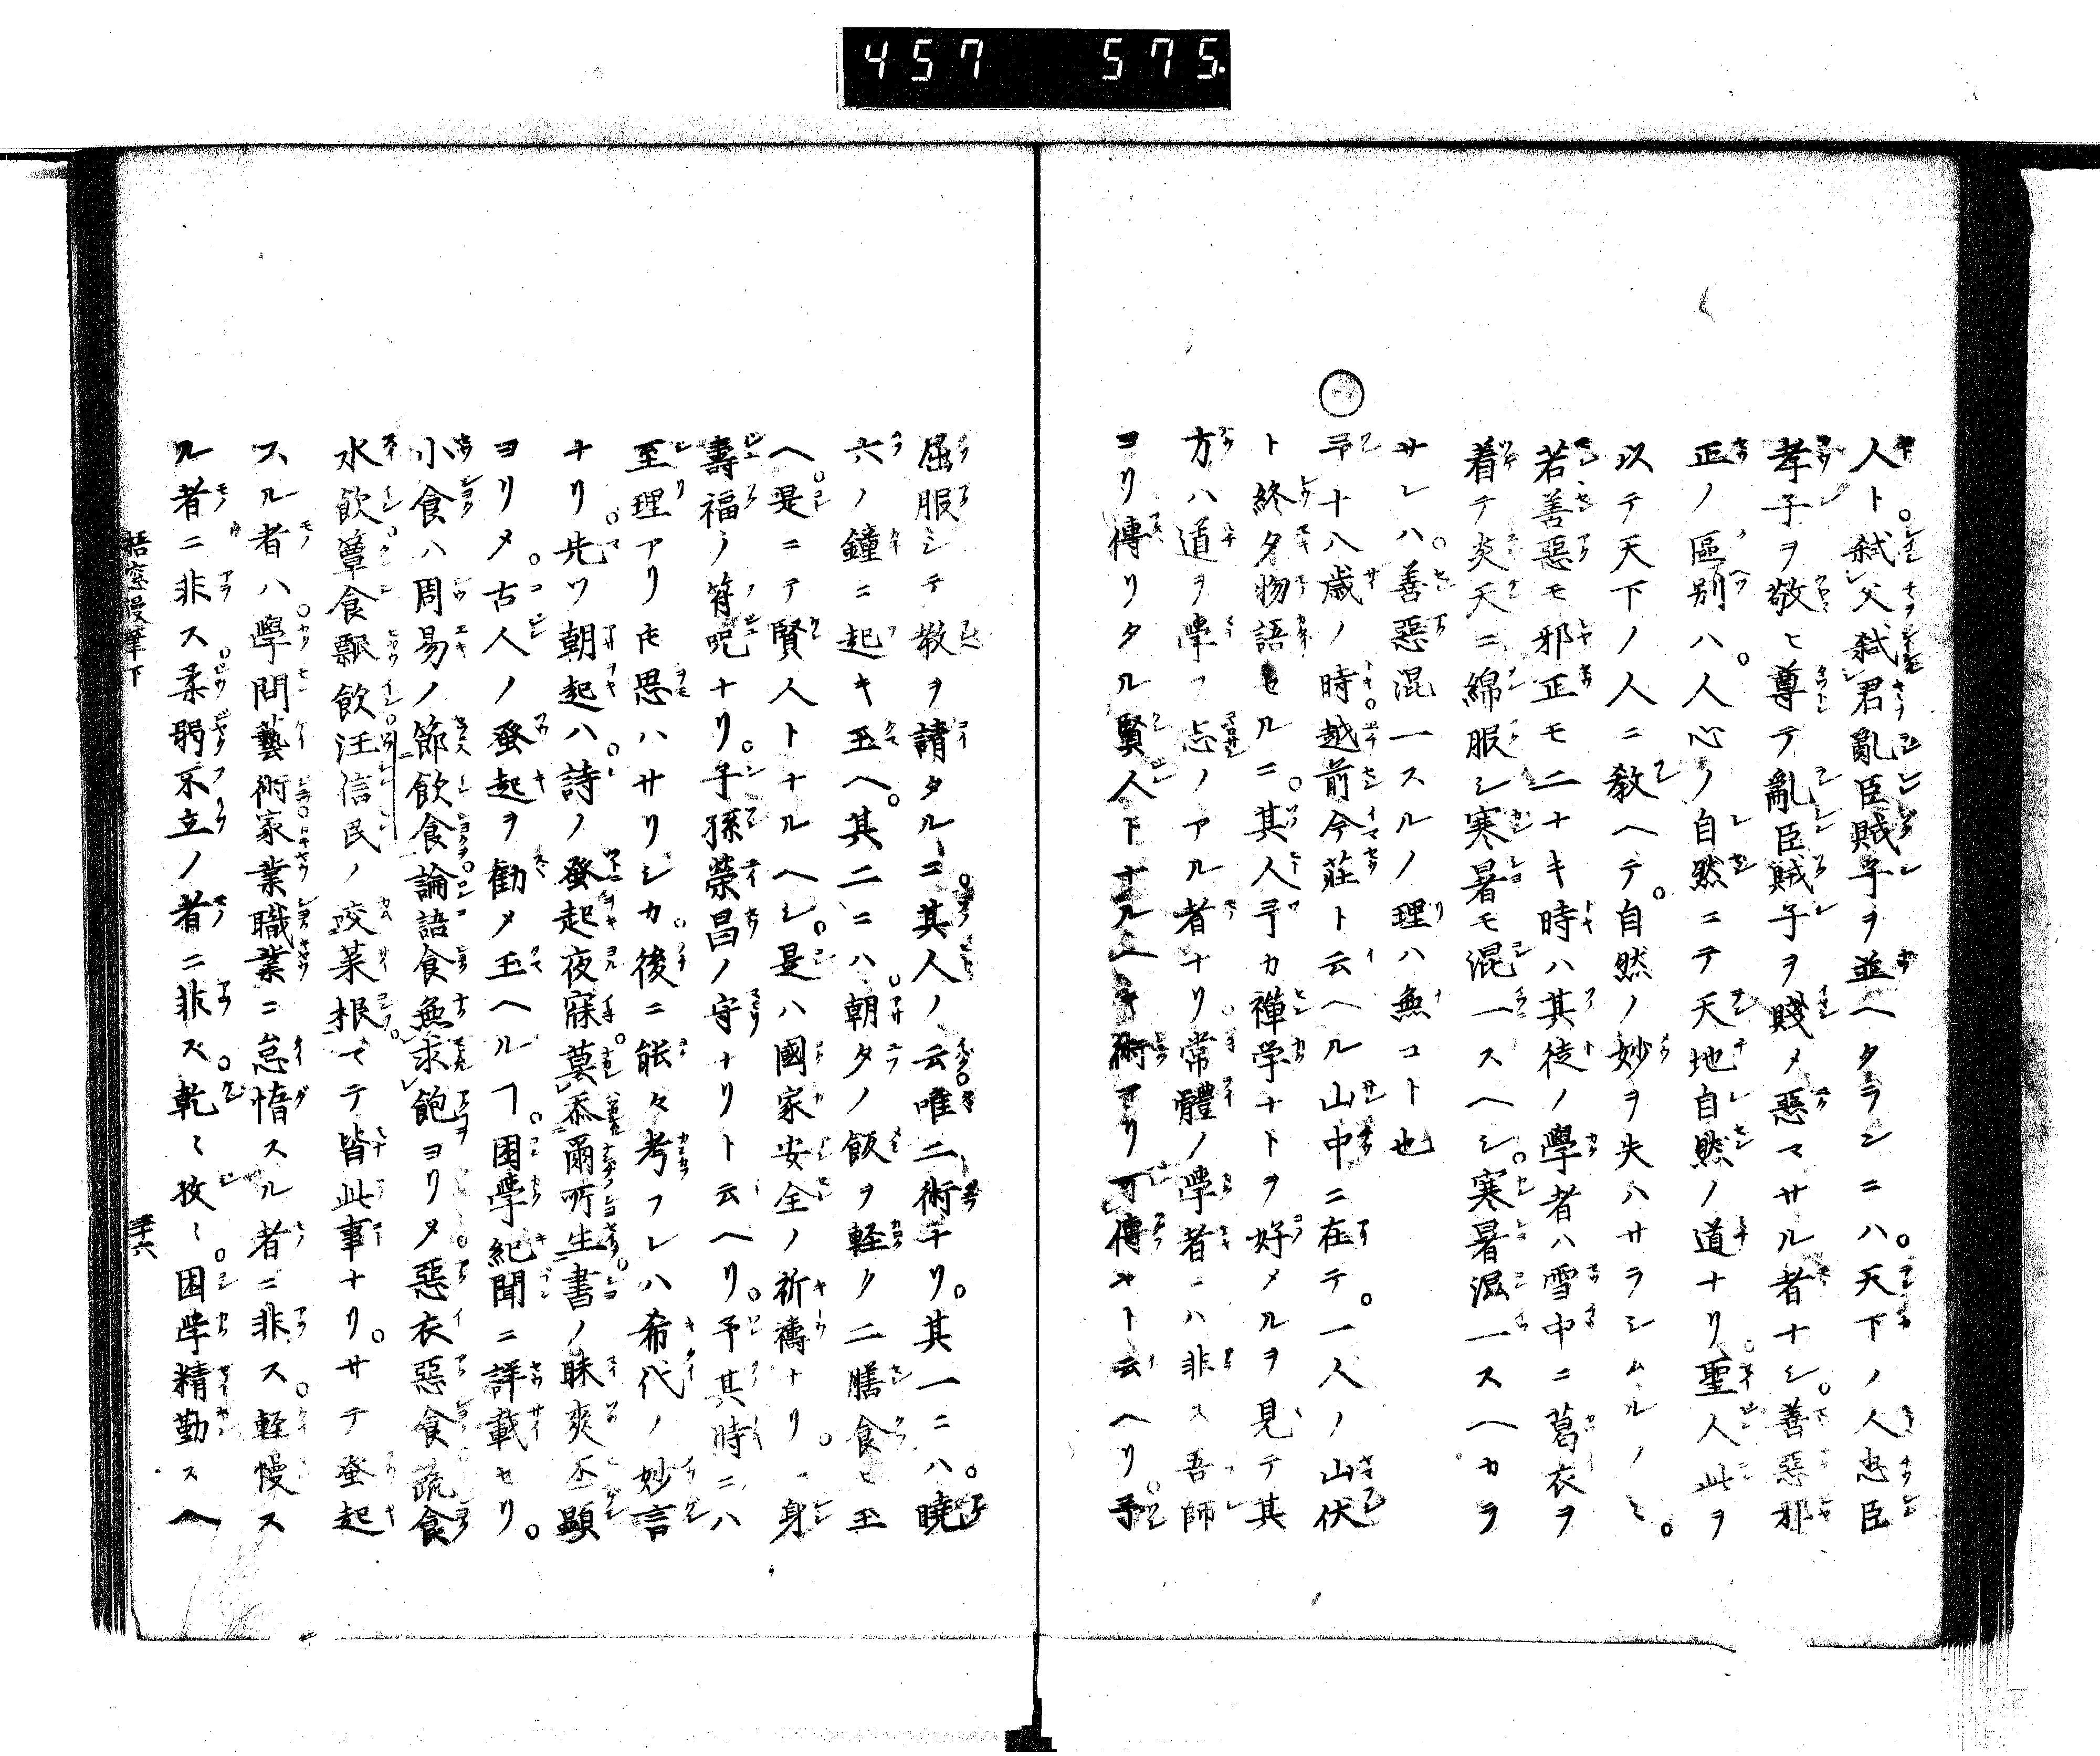 457 575.
人ト弑父弑君亂臣賊子ヲ並ヘタランニハ。天下ノ人忠臣
孝子ヲ敬ヒ尊テ亂臣賊子ヲ賤メ惡マサル者ナシ。善惡邪
正ノ區別ハ。人心ノ自然ニテ天地自然ノ道ナリ。聖人此ヲ
以テ天下ノ人ニ教ヘテ。自然ノ妙ヲ失ハサラシムルノミ。
若善惡モ邪正モ二ナキ時ハ其徒ノ學者ハ雪中ニ葛衣ヲ
着テ炎天ニ綿服シ寒暑モ混一スヘシ。寒暑混一スヘカラ
サレハ。善惡混一スルノ理ハ無コト也
予十八歳ノ時。越前今莊ト云ヘル山中ニ在テ。一人ノ山伏
ト終夕物語セルニ。其人予カ禪学ナトヲ好メルヲ見テ其
方ハ道ヲ學フ志ノアル者ナリ。常體ノ學者ニハ非ス吾師
ヨリ傳リタル賢人トナルヘキ術アリ可傳ヤト云ヘリ。予
屈服シテ教ヲ請タルニ。其人ノ云。唯二術ナリ。其一ニハ。曉
六ノ鐘ニ起キ玉ヘ。其二ニハ。朝夕ノ飯ヲ軽ク二膳食ヒ玉
ヘ。是ニテ賢人トナルヘシ。是ハ國家安全ノ祈禱ナリ。一身
壽福ノ符呪ナリ。子孫榮昌ノ守ナリト云ヘリ。予其時ニハ
至理アリ𪜈思ハサリシカ。後ニ能々考フレハ希代ノ妙言
ナリ。先ツ朝起ハ。詩ノ蚤起夜寐。莫忝爾所生。書ノ昧爽丕顯
ヨリメ。古人ノ蚤起ヲ勸メ玉ヘルヿ。困學紀聞ニ詳載セリ。
小食ハ周易ノ節飲食。論語食無求飽ヨリメ。惡衣惡食。蔬食
水飲。簞食瓢飲。汪信民ノ咬菜根マテ皆此事ナリ。サテ蚤起
スル者ハ。學問藝術家業職業ニ怠惰スル者ニ非ス。軽慢ス
ル者ニ非ス。柔弱不立ノ者ニ非ス。乾〻孜〻。困学精勤スヘ
梧窓漫筆下